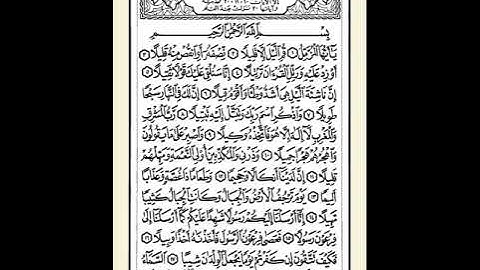 بِسْمِ ٱللَّهِ ٱلرَّحْمَٰنِ ٱلرَّحِيمِ
يَٰٓأَيُّهَا ٱلْمُزَّمِّلُ ١ قُمِ ٱلَّيْلَ إِلَّا قَلِيلًا ٢ نِّصْفَهُۥٓ أَوِ ٱنقُصْ مِنْهُ قَلِيلًا ٣
أَوْ زِدْ عَلَيْهِ وَرَتِّلِ ٱلْقُرْءَانَ تَرْتِيلًا ٤ إِنَّا سَنُلْقِى عَلَيْكَ قَوْلًا ثَقِيلًا ٥
إِنَّ نَاشِئَةَ ٱلَّيْلِ هِىَ أَشَدُّ وَطْـًٔا وَأَقْوَمُ قِيلًا ٦ إِنَّ لَكَ فِى ٱلنَّهَارِ سَبْحًا
طَوِيلًا ٧ وَٱذْكُرِ ٱسْمَ رَبِّكَ وَتَبَتَّلْ إِلَيْهِ تَبْتِيلًا ٨ رَّبُّ ٱلْمَشْرِقِ
وَٱلْمَغْرِبِ لَآ إِلَٰهَ إِلَّا هُوَ فَٱتَّخِذْهُ وَكِيلًا ٩ وَٱصْبِرْ عَلَىٰ مَا يَقُولُونَ
وَٱهْجُرْهُمْ هَجْرًا جَمِيلًا ١٠ وَذَرْنِى وَٱلْمُكَذِّبِينَ أُو۟لِى ٱلنَّعْمَةِ وَمَهِّلْهُمْ
قَلِيلًا ١١ إِنَّ لَدَيْنَآ أَنكَالًا وَجَحِيمًا ١٢ وَطَعَامًا ذَا غُصَّةٍ وَعَذَابًا
أَلِيمًا ١٣ يَوْمَ تَرْجُفُ ٱلْأَرْضُ وَٱلْجِبَالُ وَكَانَتِ ٱلْجِبَالُ كَثِيبًا
مَّهِيلًا ١٤ إِنَّآ أَرْسَلْنَآ إِلَيْكُمْ رَسُولًا شَٰهِدًا عَلَيْكُمْ كَمَآ أَرْسَلْنَآ إِلَىٰ
فِرْعَوْنَ رَسُولًا ١٥ فَعَصَىٰ فِرْعَوْنُ ٱلرَّسُولَ فَأَخَذْنَٰهُ أَخْذًا وَبِيلًا ١٦
فَكَيْفَ تَتَّقُونَ إِن كَفَرْتُمْ يَوْمًا يَجْعَلُ ٱلْوِلْدَٰنَ شِيبًا ١٧ ٱلسَّمَآءُ